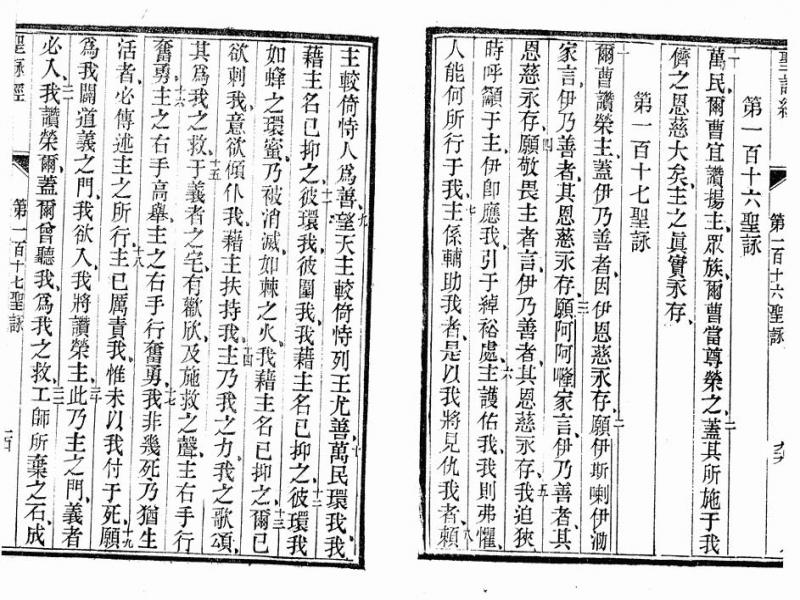 聖詠經
第一百十六聖詠
第一百十六聖詠
一
萬民爾曹宜讚揚主眾族爾曹當尊榮之二蓋其所施于我
儕之恩慈大矣主之眞實永存
第一百十七聖詠
一
爾曹讚榮主蓋伊乃善者因伊恩慈永存二願伊斯喇伊泐
家言伊乃善者其恩慈永存三願阿阿㘄家言伊乃善者其
恩慈永存四願敬畏主者言伊乃善者其恩慈永存五我迫狹
時呼籲于主伊卽應我引于綽裕處六主護佑我我則弗懼
人能何所行于我七主係輔助我者是以我將見仇我者八賴
主較倚恃人爲善九望天主較倚恃列王尤善十萬民環我我
藉主名已抑之十一彼環我彼圍我我藉主名已抑之十二彼環我
如蜂之環蜜乃被消滅如棘之火我藉主名已抑之十三爾已
欲刺我意欲傾仆我藉主扶持我十四主乃我之力我之歌頌
其爲我之救十五于義者之宅有歡欣及施救之聲主右手行
奮勇十六主之右手高舉主之右手行奮勇十七我非幾死乃猶生
活者必傳述主之所行十八主已厲責我惟未以我付于死十九願
爲我闢道義之門我欲入我將讚榮主二十此乃主之門義者
必入二一我讚榮爾蓋爾曾聽我爲我之救二二工師所棄之石成
聖詠經
第一百十七聖詠
一百